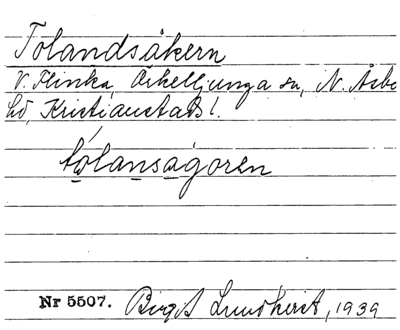 Tolandsåkern
V. Flinka, Örkelljunga sn, N. Åsbo
hd, Kristianstads l.
tólansagoren
Nr 5507. Birgit Lundkvist, 1939